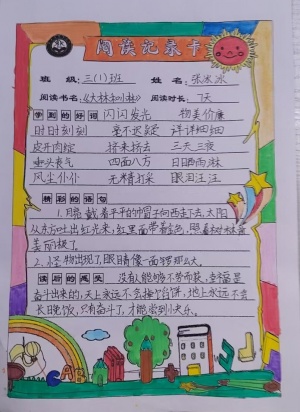 阅读记录卡
班 级:三(1)班 姓 名:张冰冰
阅读书名:《大林和小林》 阅读时长:7天
学到的好词 闪闪发光 物美价廉
时时刻刻 毫不迟疑 详详细细
皮开肉绽 挤来挤去 三天三夜
垂头丧气 四面八方 日晒雨淋
风尘仆仆 无精打采 眼泪汪汪
精彩的语句
1.月亮戴着平平的帽子向西走去,太阳
从东方吐出红光来,红里面带着金,照着
美丽极了。
2.怪物出现了,眼睛像面锣那么大。
读后的感受 没有人能够不劳而获,幸福是
奋斗出来的,天上永远不会掉个馅饼,地上永远不会
长晚饭,只有奋斗了,才能尝到小快乐。
CAB